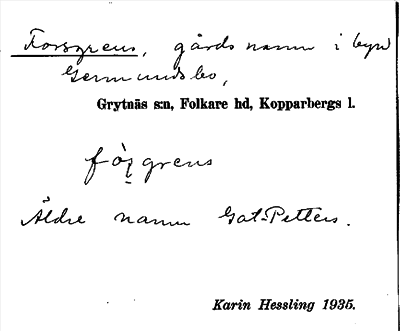 Forsgrens, gårdsnamn i byn
Germundsbo,
Grytnäs s:n, Folkare hd, Kopparbergs l.
grens
Äldre namn Gat-Petters.
Karin Hessling 1935.